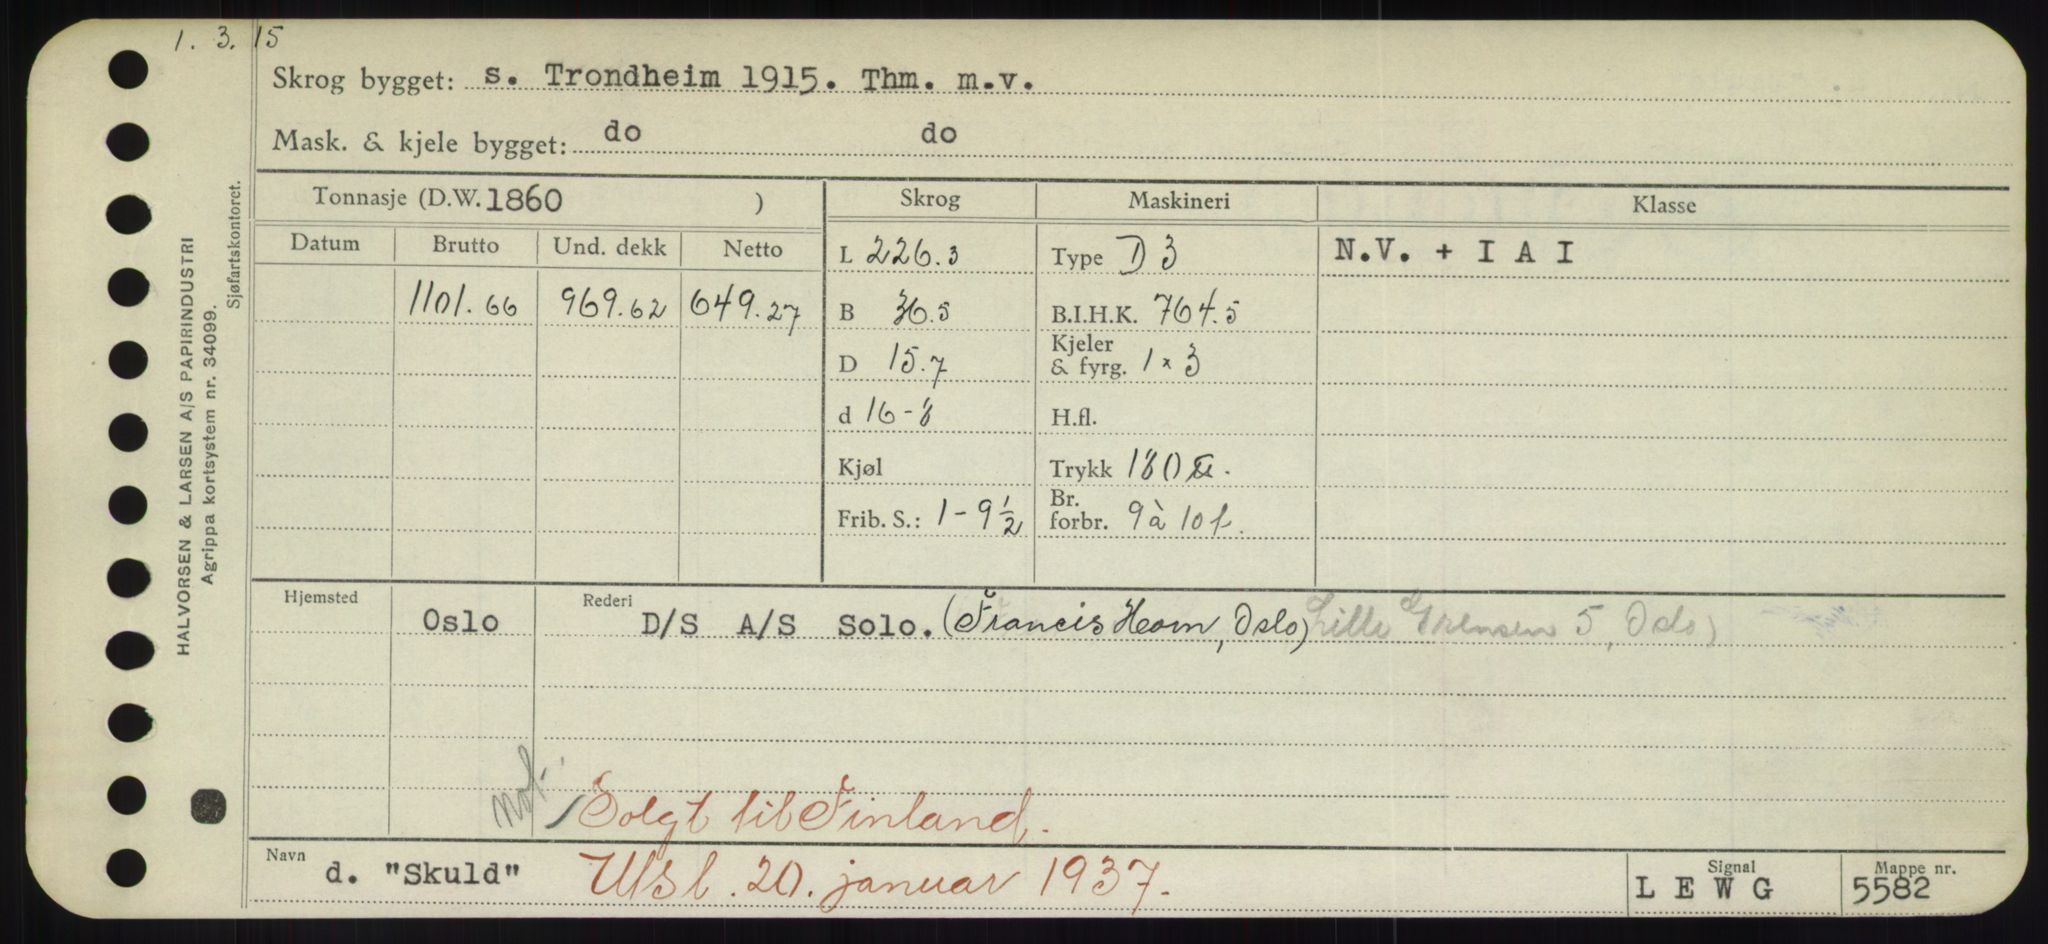 1. 3. 15
Skrog bygget: s. Trondheim 1915. Thm. m.v.
Mask. & kjele bygget: do do
HALVORSEN & LARSEN A/S PAPIRINDUSTRI
Agrippa kortsystem nr. 34099.
Sjøfartskontoret.
Tonnasje (D.W. 1860 ) Skrog Maskineri Klasse
Datum Brutto Und. dekk Netto
L 226.3 Type D 3 N.V. + I A I
1101.66 969.62 649.27 B 36.5 B.I.H.K. 764.5
D 15.7 Kjeler & fyrg. 1 x 3
d 16-8 H.fl.
Kjøl Trykk 180 ℔.
Frib. S.: 1-9½ Br. forbr. 9 à 10 t.
Hjemsted Oslo Rederi D/S A/S Solo. (Francis Horn, Oslo) Lille Grensen 5, Oslo)
not.
Solgt til Finland.
Navn d. "Skuld" Utsl. 20. januar 1937. Signal L E W G Mappe nr. 5582